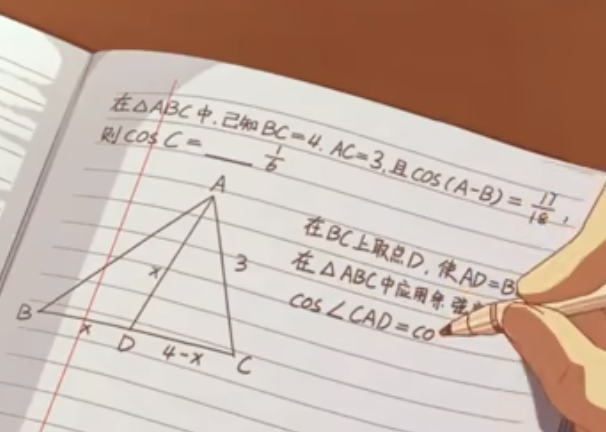 在△ABC中,已知BC=4,AC=3,且cos(A-B)=17/18,
则cosC=____ 1/6
A
B
C
D
x
x
3
4-x
在BC上取点D,使AD=B
在△ABC中应用余弦
cos∠CAD=co